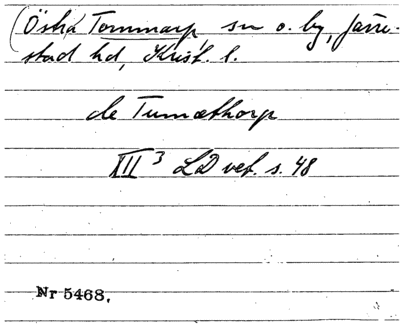 (Östra Tommarp, sn o. by, Järre-
stad hd, Krist. l.
de Tumæthorp
XII³ LD vet. s. 48
Nr 5468.